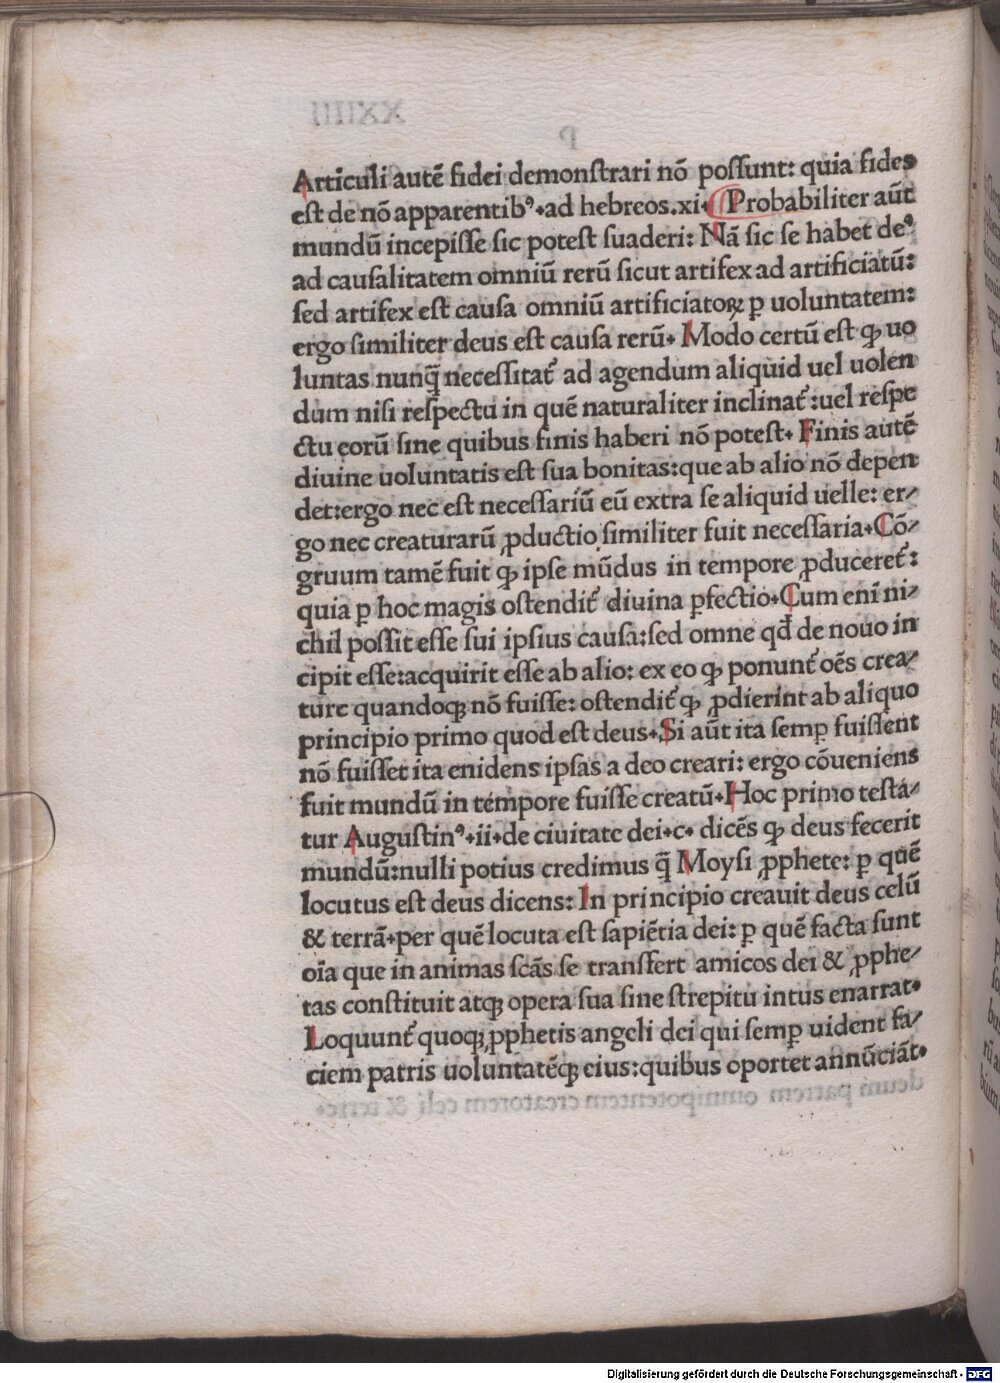 Articuli autē fidei demonſtrari nō poſſunt: quia fides
eſt de nō apparentibꝰ.ad hebreos.xi. ¶Probabiliter aūt
mundū incepiſſe ſic poteſt ſuaderi: Nā ſic ſe habet deꝰ
ad cauſalitatem omniū rerū ſicut artifex ad artificiatū:
ſed artifex eſt cauſa omniū artificiatoꝝ ꝑ uoluntatem:
ergo ſimiliter deus eſt cauſa rerū. Modo certū eſt ꝙ uo
luntas nunq̄ neceſſitat᷑ ad agendum aliquid uel uolen
dum niſi reſpectu in quē naturaliter inclinat᷑:uel reſpe
ctu eorū ſine quibus finis haberi nō poteſt. Finis autē
diuine uoluntatis eſt ſua bonitas:que ab alio nō depen
det:ergo nec eſt neceſſariū eū extra ſe aliquid uelle: er/
go nec creaturarū ꝓductio ſimiliter fuit neceſſaria.Cō/
gruum tamē fuit ꝙ ipſe mūdus in tempore ꝓduceret᷑:
quia ꝑ hoc magis oſtendit᷑ diuina ꝑfectio.Cum eni̅ ni/
chil poſſit eſſe ſui ipſius cauſa:ſed omne qd̄ de nouo in
cipit eſſe:acquirit eſſe ab alio: ex eo ꝙ ponunt᷑ oēs crea/
ture quandoqꝫ nō fuiſſe: oſtendit᷑ ꝙ ꝓdierint ab aliquo
principio primo quod eſt deus.Si aūt ita ſemꝑ fuiſſent
nō fuiſſet ita enidens ipſas a deo creari: ergo cōueniens
fuit mundū in tempore fuiſſe creatū.Hoc primo teſta/
tur Auguſtinꝰ.ii.de ciuitate dei.c. dicēs ꝙ deus fecerit
mundū:nulli potius credimus q̄ Moyſi ꝓphete: ꝑ quē
locutus eſt deus dicens: In principio creauit deus celū
& terrā.per quē locuta eſt ſapiētia dei: ꝑ quē facta ſunt
oīa que in animas ſcās ſe transfert amicos dei & ꝓphe/
tas conſtituit atqꝫ opera ſua ſine ſtrepitu intus enarrat.
Loquunt᷑ quoqꝫ ꝓphetis angeli dei qui ſemꝑ uident fa/
ciem patris uoluntatēqꝫ eius:quibus oportet annūciāt.
Digitalisierung gefördert durch die Deutsche Forschungsgemeinschaft - DFG